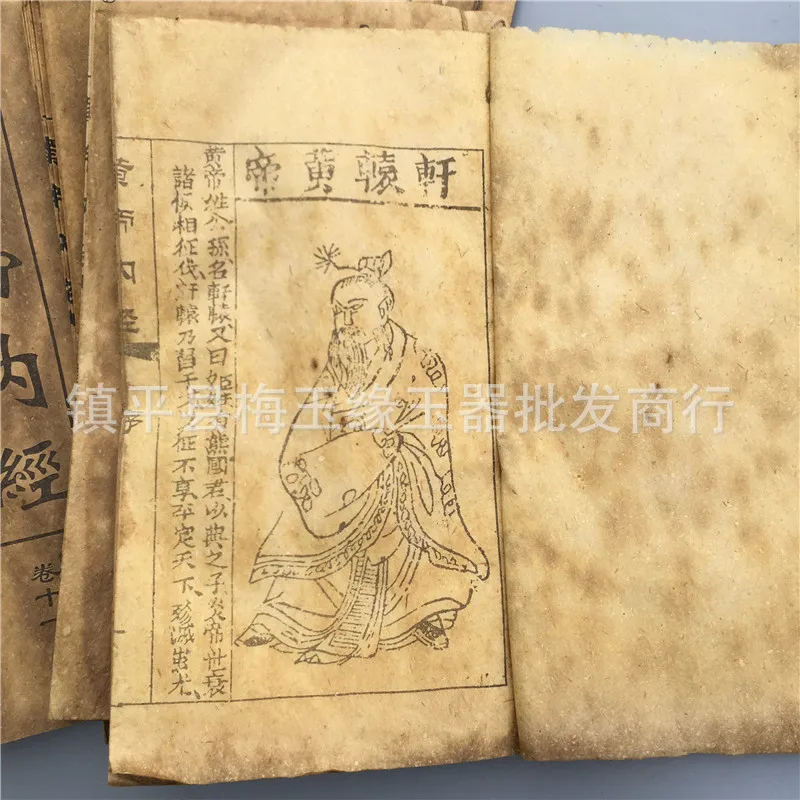 軒轅黃帝
黄帝姓公孫、名軒轅、又曰姬姓有熊國君、以典之子、炎帝世衰
諸侯相征伐、軒轅乃習干戈征不享、平定天下、殄滅蚩尤、
黃帝內經
序
內經
卷十一
镇平县梅玉缘玉器批发商行